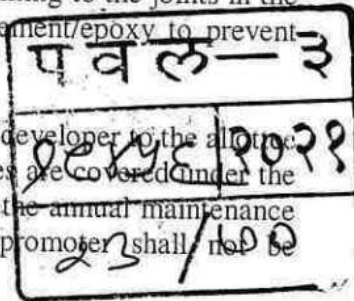 ning to the joints in the
ement/epoxy to prevent
प व ल — ३
developer to the allottee
१८४५६ २०२१
es are covered under the
the annual maintenance
promoter shall not be
२३ / ७०